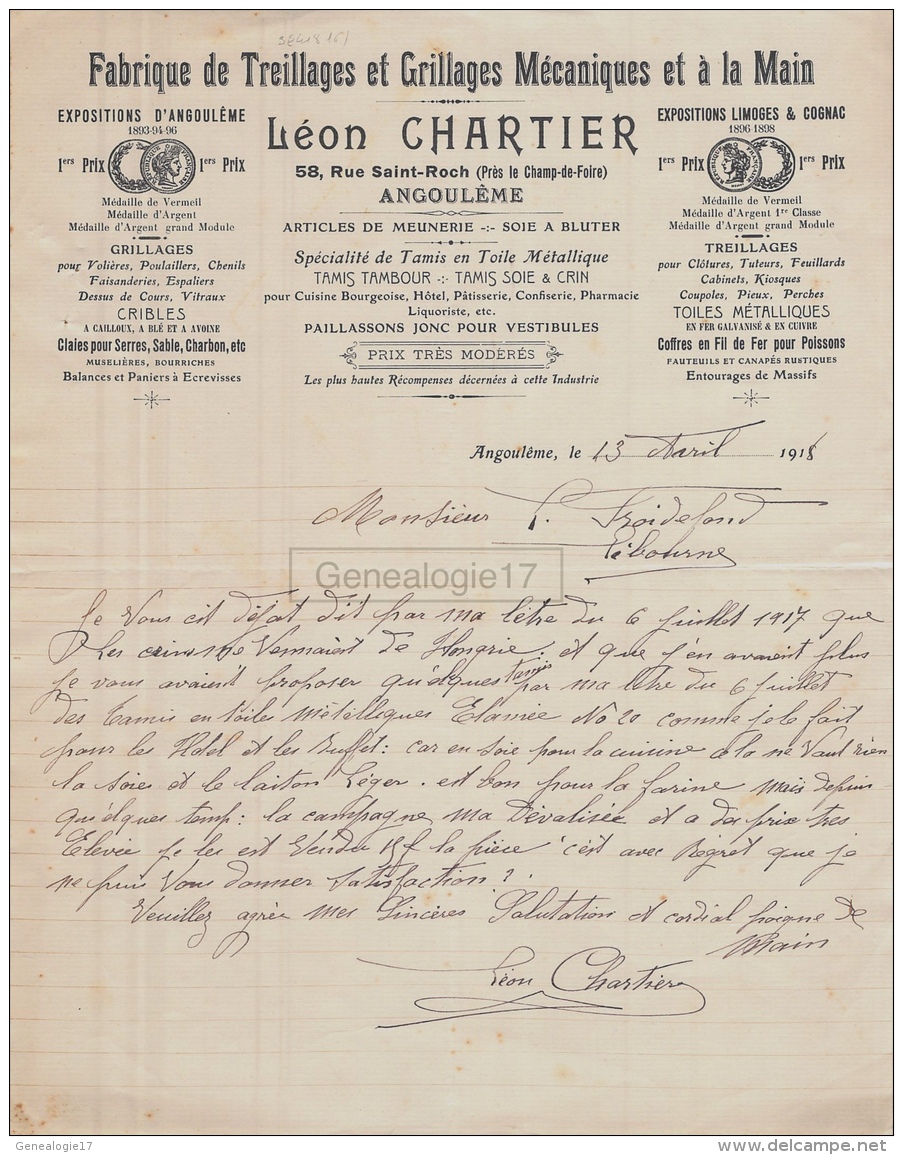 Fabrique de Treillages et Grillages Mécaniques et à la Main
EXPOSITIONS D'ANGOULÊME
1893-94-96
1ers Prix 1ers Prix
Médaille de Vermeil
Médaille d'Argent
Médaille d'Argent grand Module
GRILLAGES
pour Volières, Poulaillers, Chenils
Faisanderies, Espaliers
Dessus de Cours, Vitraux
CRIBLES
A CAILLOUX, A BLÉ ET A AVOINE
Claies pour Serres, Sable, Charbon, etc
MUSELIÈRES, BOURRICHES
Balances et Paniers à Ecrevisses
Léon CHARTIER
58, Rue Saint-Roch (Près le Champ-de-Foire)
ANGOULÊME
ARTICLES DE MEUNERIE -:- SOIE A BLUTER
Spécialité de Tamis en Toile Métallique
TAMIS TAMBOUR -:- TAMIS SOIE & CRIN
pour Cuisine Bourgeoise, Hôtel, Pâtisserie, Confiserie, Pharmacie
Liquoriste, etc.
PAILLASSONS JONC POUR VESTIBULES
PRIX TRÈS MODÉRÉS
Les plus hautes Récompenses décernées à cette Industrie
EXPOSITIONS LIMOGES & COGNAC
1896-1898
1ers Prix 1ers Prix
Médaille de Vermeil
Médaille d'Argent 1re Classe
Médaille d'Argent grand Module
TREILLAGES
pour Clôtures, Tuteurs, Feuillards
Cabinets, Kiosques
Coupoles, Pieux, Perches
TOILES MÉTALLIQUES
EN FER GALVANISÉ & EN CUIVRE
Coffres en Fil de Fer pour Poissons
FAUTEUILS ET CANAPÉS RUSTIQUES
Entourages de Massifs
Angoulême, le 13 Avril 1918
Monsieur P. Froidefond
Libourne
Genealogie17
Je Vous eit déjat dit par ma lètre du 6 Juillet 1917 que
Les crins me Vennaient de Hongrie : et que j'en avaient plus
je vous avaient proposer quélques tamis par ma lètre du 6 juillet
des tamis en toiles métalliques Etamée No 20 comme je le fait
pour les Hotel et les Buffet : car en Soie pour la cuisine cela ne Vaut rien
la soies et le laiton Léger. est bon pour la farine mais depuis
quélques temp : la campagne ma Dévalisée et a des prix tres
Elevée je les est Vendu la pièce c'est avec Régret que je
ne puis Vous donner satisfaction.
Veuillez agrée mes Sincères Salutation et cordial poigne de
Main
Léon Chartier
Genealogie17
www.delcampe.net